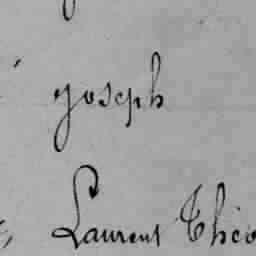 Joseph
Laurent Théo